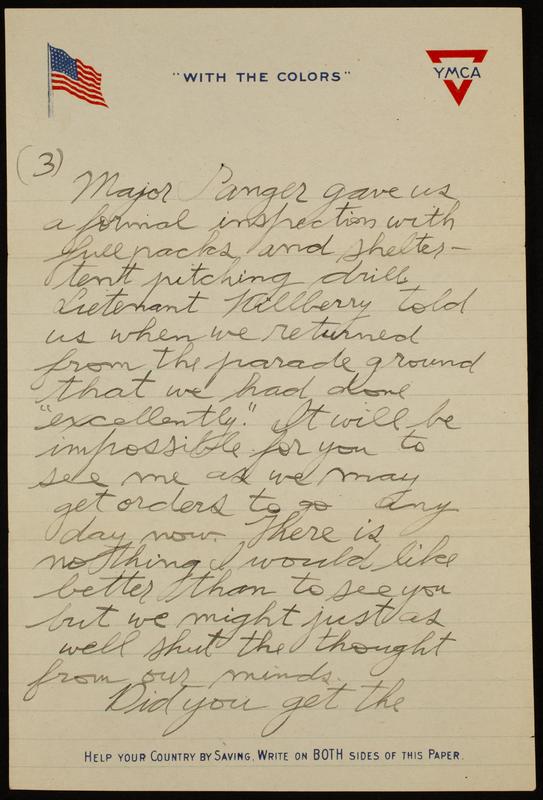 "WITH THE COLORS"
YMCA
(3)
Major Sanger gave us
a formal inspection with
full packs and shelter-
tent pitching drill.
Lietenant Hillberry told
us when we returned
from the parade ground
that we had done
"excellently." It will be
impossible for you to
see me as we may
get orders to go any
day now. There is
nothing I would like
better than to see you
but we might just as
well shut the thought
from our minds.
Did you get the
HELP YOUR COUNTRY BY SAVING, WRITE ON BOTH SIDES OF THIS PAPER.